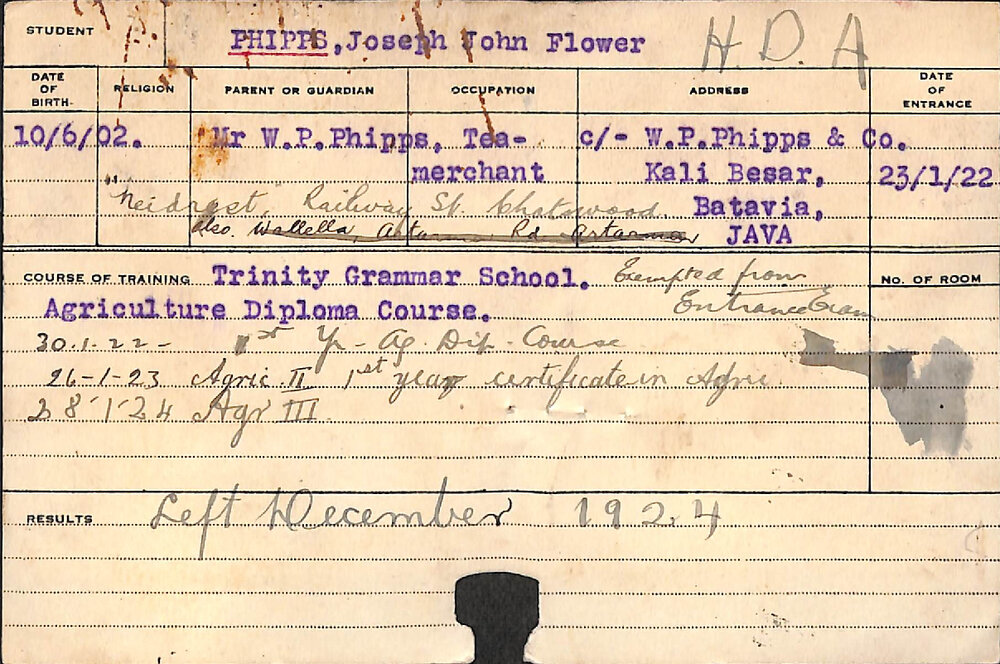 STUDENT PHIPPS, Joseph John Flower H.D.A
DATE OF BIRTH. RELIGION PARENT OR GUARDIAN OCCUPATION ADDRESS DATE OF ENTRANCE
10/6/02. Mr W.P.Phipps, Tea- c/- W.P.Phipps & Co.
merchant Kali Besar, 23/1/22
Railway St. Chatswood. Batavia,
also. Wallella, Artarmon Rd Artarmon JAVA
COURSE OF TRAINING Trinity Grammar School. Exempted from No. OF ROOM
Agriculture Diploma Course. Entrance Exam
30.1.22 - 1st Yr - Ag. Dip. Course
26-1-23 Agric. II 1st year certificate in Agric.
28.1.24 Agr III
RESULTS Left December 1924